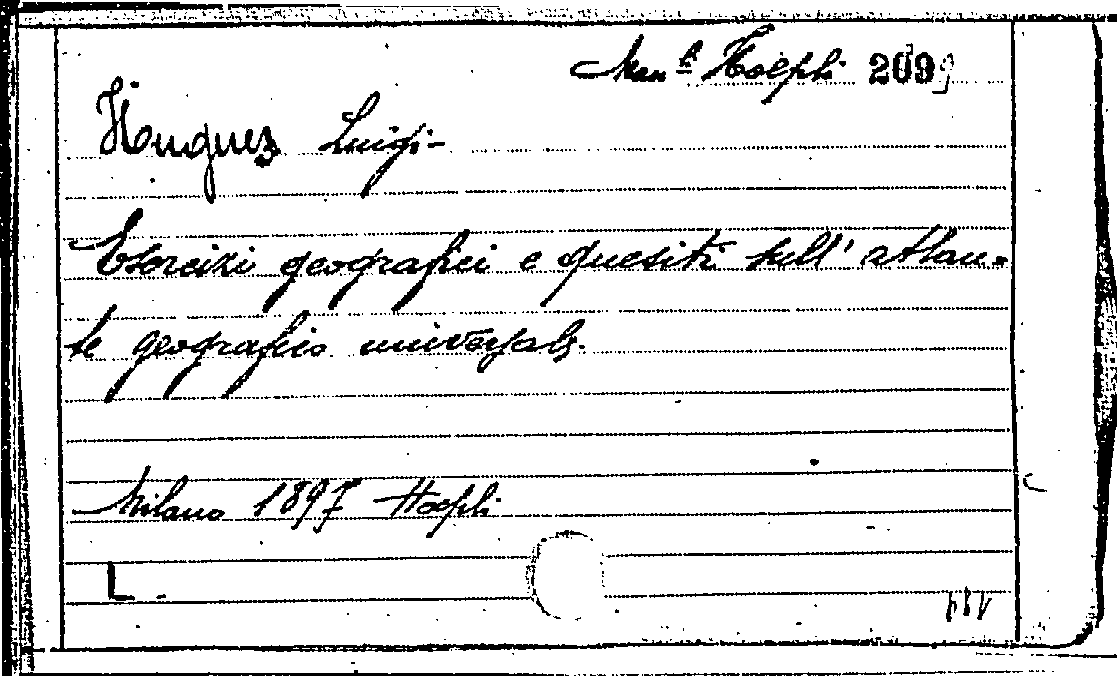 Man.li Hoepli 2099
Hougues Luigi-
Esercizi geografici e quesiti sull' atlan-
te geografico universale.
Milano 1897 Hoepli
L.